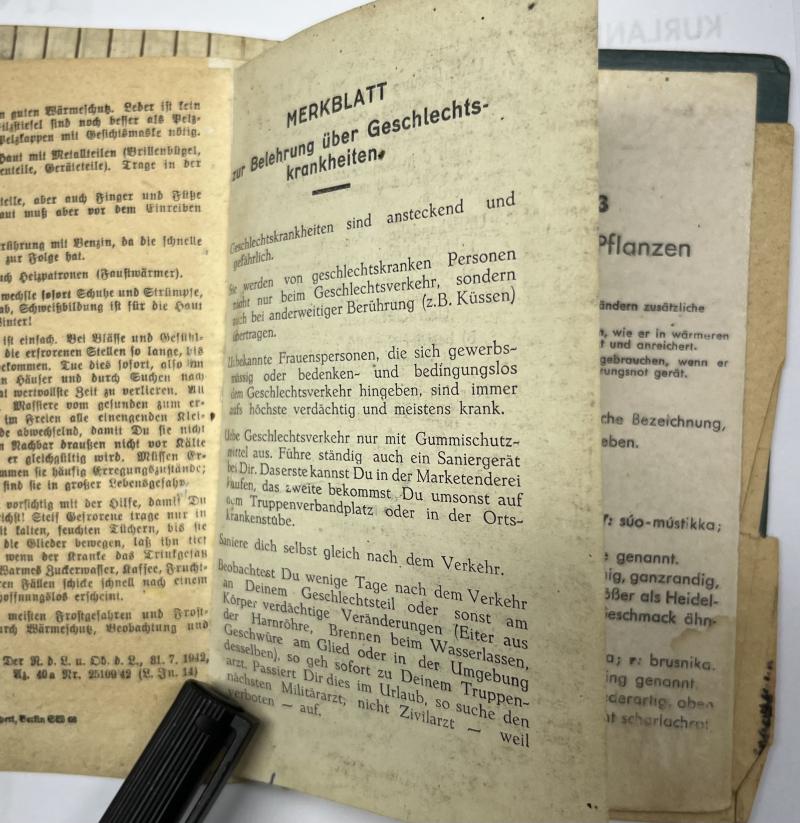 KURLAN
n guten Wärmeschutz. Leder ist kein
ilzstiefel sind noch besser als Pelz-
Pelzkappen mit Gesichtsmaske nötig.
Haut mit Metallteilen (Brillenbügel,
enteile, Geräteteile). Trage in der
teile, aber auch Finger und Füße
aut muß aber vor dem Einreiben
rührung mit Benzin, da die schnelle
zur Folge hat.
uch Heizpatronen (Faustwärmer).
wechsle sofort Schuhe und Strümpfe,
ab, Schweißbildung ist für die Haut
Winter!
ist einfach. Bei Blässe und Gefühl-
die erfrorenen Stellen so lange, bis
ekommen. Tue dies sofort, also im
n Häuser und durch Suchen nach
at wertvollste Zeit zu verlieren. All
Massiere vom gesunden zum er-
im Freien alle einengenden Klei-
de abwechselnd, damit Du sie nicht
n Nachbar draußen nicht vor Kälte
er gleichgültig wird. Müssen Er-
mmen sie häufig Erregungszustände;
sind sie in großer Lebensgefahr.
vorsichtig mit der Hilfe, damit Du
richst! Steif Gefrorene trage nur in
it kalten, feuchten Tüchern, bis sie
die Glieder bewegen, laß ihn tief
wenn der Kranke das Trinkgefäß
Warmes Zuckerwasser, Kaffee, Frucht-
ren Fällen schicke schnell nach einem
hoffnungslos erscheint.
meisten Frostgefahren und Frost-
urch Wärmeschutz, Beobachtung und
Der R. d. L. u. Ob. d. L., 31. 7. 1942,
Az. 49a Nr. 25109/42 (L. In. 14)
Berlin SW 68
MERKBLATT
zur Belehrung über Geschlechts-
krankheiten.
Geschlechtskrankheiten sind ansteckend und
gefährlich.
Sie werden von geschlechtskranken Personen
nicht nur beim Geschlechtsverkehr, sondern
auch bei anderweitiger Berührung (z.B. Küssen)
übertragen.
Unbekannte Frauenspersonen, die sich gewerbs-
mässig oder bedenken- und bedingungslos
dem Geschlechtsverkehr hingeben, sind immer
aufs höchste verdächtig und meistens krank.
Uebe Geschlechtsverkehr nur mit Gummischutz-
mittel aus. Führe ständig auch ein Saniergerät
bei Dir. Das erste kannst Du in der Marketenderei
kaufen, das zweite bekommst Du umsonst auf
dem Truppenverbandplatz oder in der Orts-
krankenstube.
Saniere dich selbst gleich nach dem Verkehr.
Beobachtest Du wenige Tage nach dem Verkehr
an Deinem Geschlechtsteil oder sonst am
Körper verdächtige Veränderungen (Eiter aus
der Harnröhre, Brennen beim Wasserlassen,
Geschwüre am Glied oder in der Umgebung
desselben), so geh sofort zu Deinem Truppen-
arzt. Passiert Dir dies im Urlaub, so suche den
nächsten Militärarzt, nicht Zivilarzt — weil
verboten — auf.
3
Pflanzen
ändern zusätzliche
n, wie er in wärmeren
t und anreichert.
gebrauchen, wenn er
rungsnot gerät.
che Bezeichnung,
eben.
r: súo-mústikka;
e genannt.
nig, ganzrandig,
ößer als Heidel-
Geschmack ähn-
a; r: brusnika.
ing genannt.
ederartig, oben
ht scharlachrot